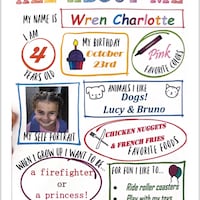 ALL ABOUT ME
MY NAME IS Wren Charlotte
I AM
4
YEARS OLD
MY BIRTHDAY
October
23rd
Pink
FAVORITE COLORS
ANIMALS I LIKE
Dogs!
Lucy & Bruno
MY SELF PORTRAIT
CHICKEN NUGGETS
& FRENCH FRIES
FAVORITE FOODS
WHEN I GROW UP I WANT TO BE...
a firefighter
or a
princess!
FOR FUN I LIKE TO...
Ride roller coasters
Play with my toys